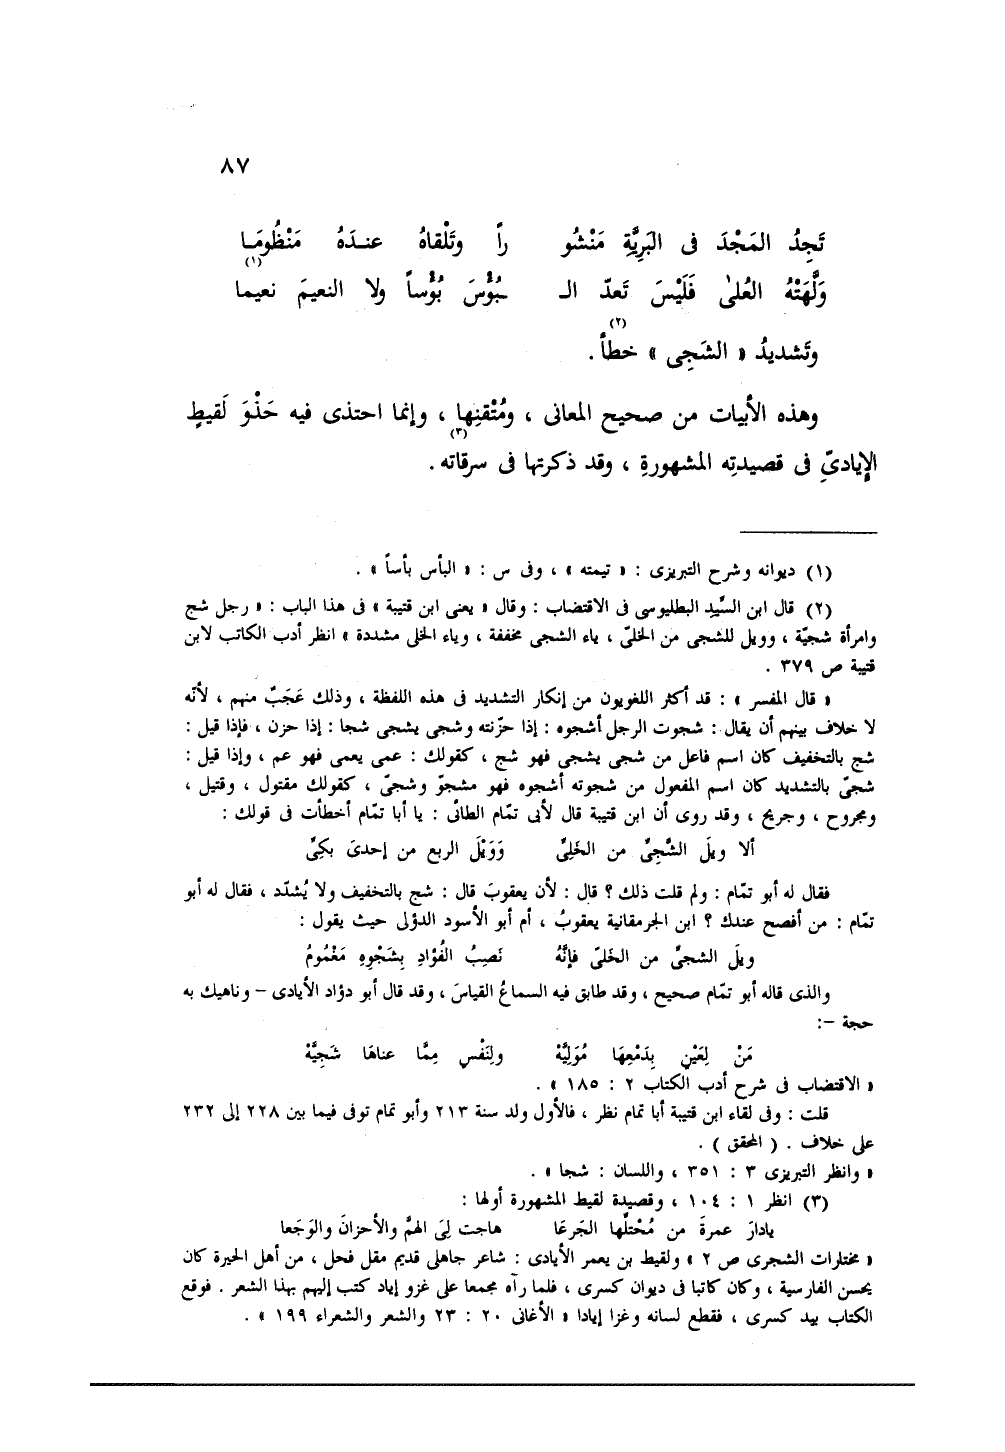 ٨٧
تَجِدُ المَجْدَ فى البَرِيَّةِ مَنْشُو راً وتَلْقاهُ عنـدَهُ مَنْظُومَـا
وَلَّهَتْهُ العُلىٰ فَلَيْسَ تَعدّ الـ ـبُؤْسَ بُؤْساً ولا النعيمَ نعيما (١)
وتَشديدُ « الشَجِى » خطأً (٢) .
وهذه الأبيات من صحيح المعانى ، ومُتْقنِها ، وإنما احتذى فيه حَذْوَ لَقيطٍ
الإيادىِّ فى قصيدتِه المشهورةِ (٣) ، وقد ذكرتها فى سرقاته .
(١) ديوانه وشرح التبريزى : « تيمته » ، وفى س : « البأس بأساً » .
(٢) قال ابن السِّيد البطليوسى فى الاقتضاب : وقال « يعنى ابن قتيبة » فى هذا الباب : « رجل شج
وامرأة شجيّة ، وويل للشجى من الخلىّ ، ياء الشجى مخففة ، وياء الخلى مشددة » انظر أدب الكاتب لابن
قتيبة ص ٣٧٩ .
« قال المفسر » : قد أكثر اللغويون من إنكار التشديد فى هذه اللفظة ، وذلك عَجَبٌ منهم ، لأنّه
لا خلاف بينهم أن يقال : شجوت الرجل أشجوه : إذا حزّنته وشجى يشجى شجا : إذا حزن ، فإذا قيل :
شج بالتخفيف كان اسم فاعل من شجى يشجى فهو شج ، كقولك : عمى يعمى فهو عم ، وإذا قيل :
شجىّ بالتشديد كان اسم المفعول من شجوته أشجوه فهو مشجوّ وشجىّ ، كقولك مقتول ، وقتيل ،
ومجروح ، وجريح ، وقد روى أن ابن قتيبة قال لأبى تمّام الطائى : يا أبا تمّام أخطأت فى قولك :
ألا ويلَ الشَّجِىِّ من الخَلِىِّ وَوَيْلَ الربع من إحدىَ بَكِىِّ
فقال له أبو تمّام : ولم قلت ذلك ؟ قال : لأن يعقوبَ قال : شج بالتخفيف ولا يُشدّد ، فقال له أبو
تمّام : من أفصح عندك ؟ ابن الجرمقانية يعقوبُ ، أم أبو الأسود الدؤلى حيث يقول :
ويلَ الشجىِّ من الخَلىّ فإنَّهُ نَصِبُ الفُؤَادِ بِشَجْوِهِ مَغْمُومُ
والذى قاله أبو تمّام صحيح ، وقد طابق فيه السماعُ القياسَ ، وقد قال أبو دؤاد الأيادى – وناهيك به
حجة –:
مَنْ لِعَيْنٍ بِدَمْعِهَا مُوَلِيَّهْ ولِنَفْسٍ مِمَّا عناهَا شَجِيَّهْ
« الاقتضاب فى شرح أدب الكتاب ٢ : ١٨٥ » .
قلت : وفى لقاء ابن قتيبة أبا تمام نظر ، فالأول ولد سنة ٢١٣ وأبو تمام توفى فيما بين ٢٢٨ إلى ٢٣٢
على خلاف . ( المحقق ) .
« وانظر التبريزى ٣ : ٣٥١ ، واللسان : شجا » .
(٣) انظر ١ : ١٠٤ ، وقصيدة لقيط المشهورة أولها :
يادارَ عمرةَ من مُحْتلِّها الجَرعَا هاجت لِىَ الهمَّ والأحزانَ والوَجَعا
« مختارات الشجرى ص ٢ » ولقيط بن يعمر الأيادى : شاعر جاهلى قديم مقل فحل ، من أهل الحيرة كان
يحسن الفارسية ، وكان كاتبا فى ديوان كسرى ، فلما رآه مجمعا على غزو إياد كتب إليهم بهذا الشعر . فوقع
الكتاب بيد كسرى ، فقطع لسانه وغزا إيادا « الأغانى ٢٠ : ٢٣ والشعر والشعراء ١٩٩ » .